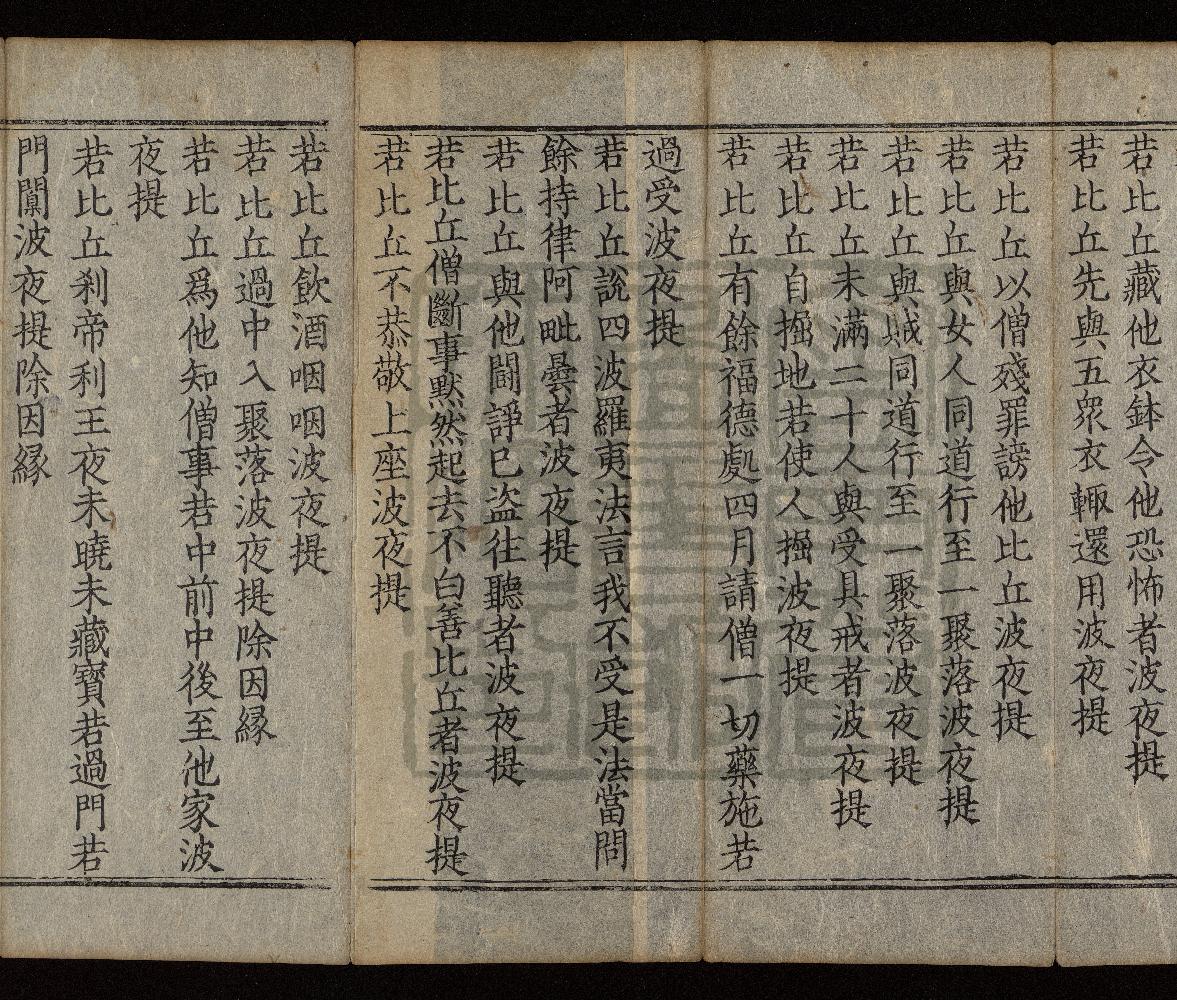 若比丘藏他衣鉢令他恐怖者波夜提
若比丘先與五衆衣輙還用波夜提
若比丘以僧殘罪謗他比丘波夜提
若比丘與女人同道行至一聚落波夜提
若比丘與賊同道行至一聚落波夜提
若比丘未滿二十人與受具戒者波夜提
若比丘自掘地若使人掘波夜提
若比丘有餘福德處四月請僧一切藥施若
過受波夜提
若比丘說四波羅夷法言我不受是法當問
餘持律阿毗曇者波夜提
若比丘與他鬪諍已盜往聽者波夜提
若比丘僧斷事默然起去不白善比丘者波夜提
若比丘不恭敬上座波夜提
若比丘飲酒咽咽波夜提
若比丘過中入聚落波夜提除因緣
若比丘爲他知僧事若中前中後至他家波
夜提
若比丘刹帝利王夜未曉未藏寶若過門若
門闑波夜提除因緣